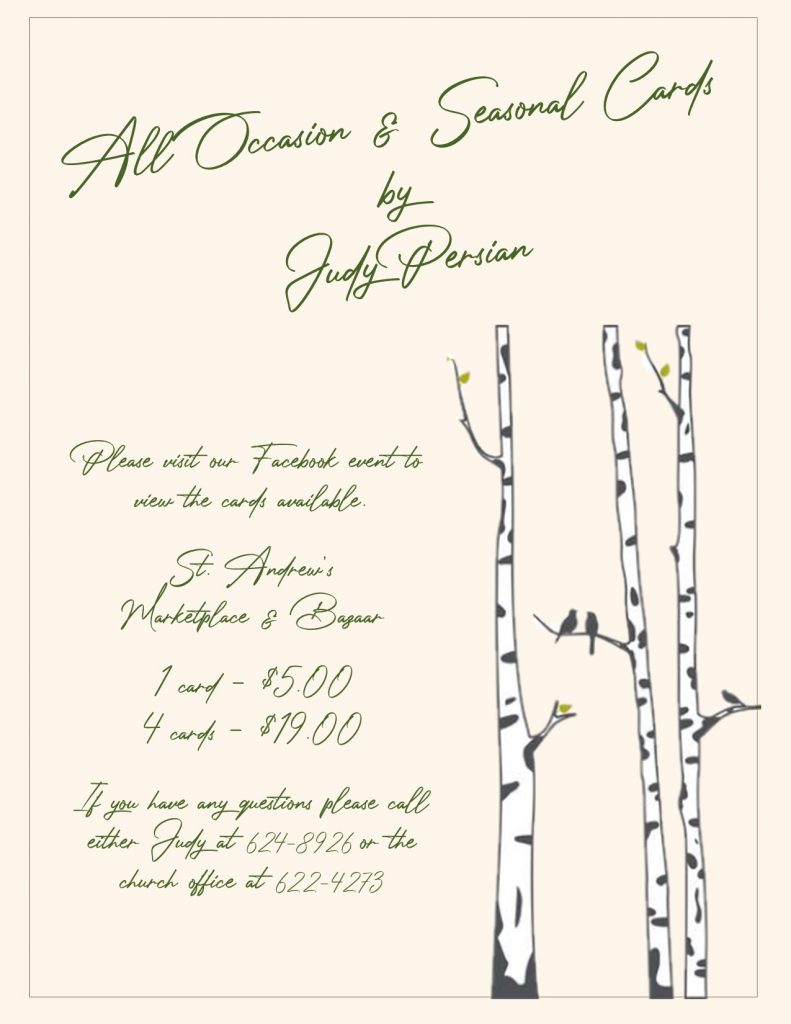 All Occasion & Seasonal Cards
by
Judy Persian
Please visit our Facebook event to
view the cards available.
St. Andrew's
Marketplace & Bazaar
1 card - $5.00
4 cards - $19.00
If you have any questions please call
either Judy at 624-8926 or the
church office at 622-4273